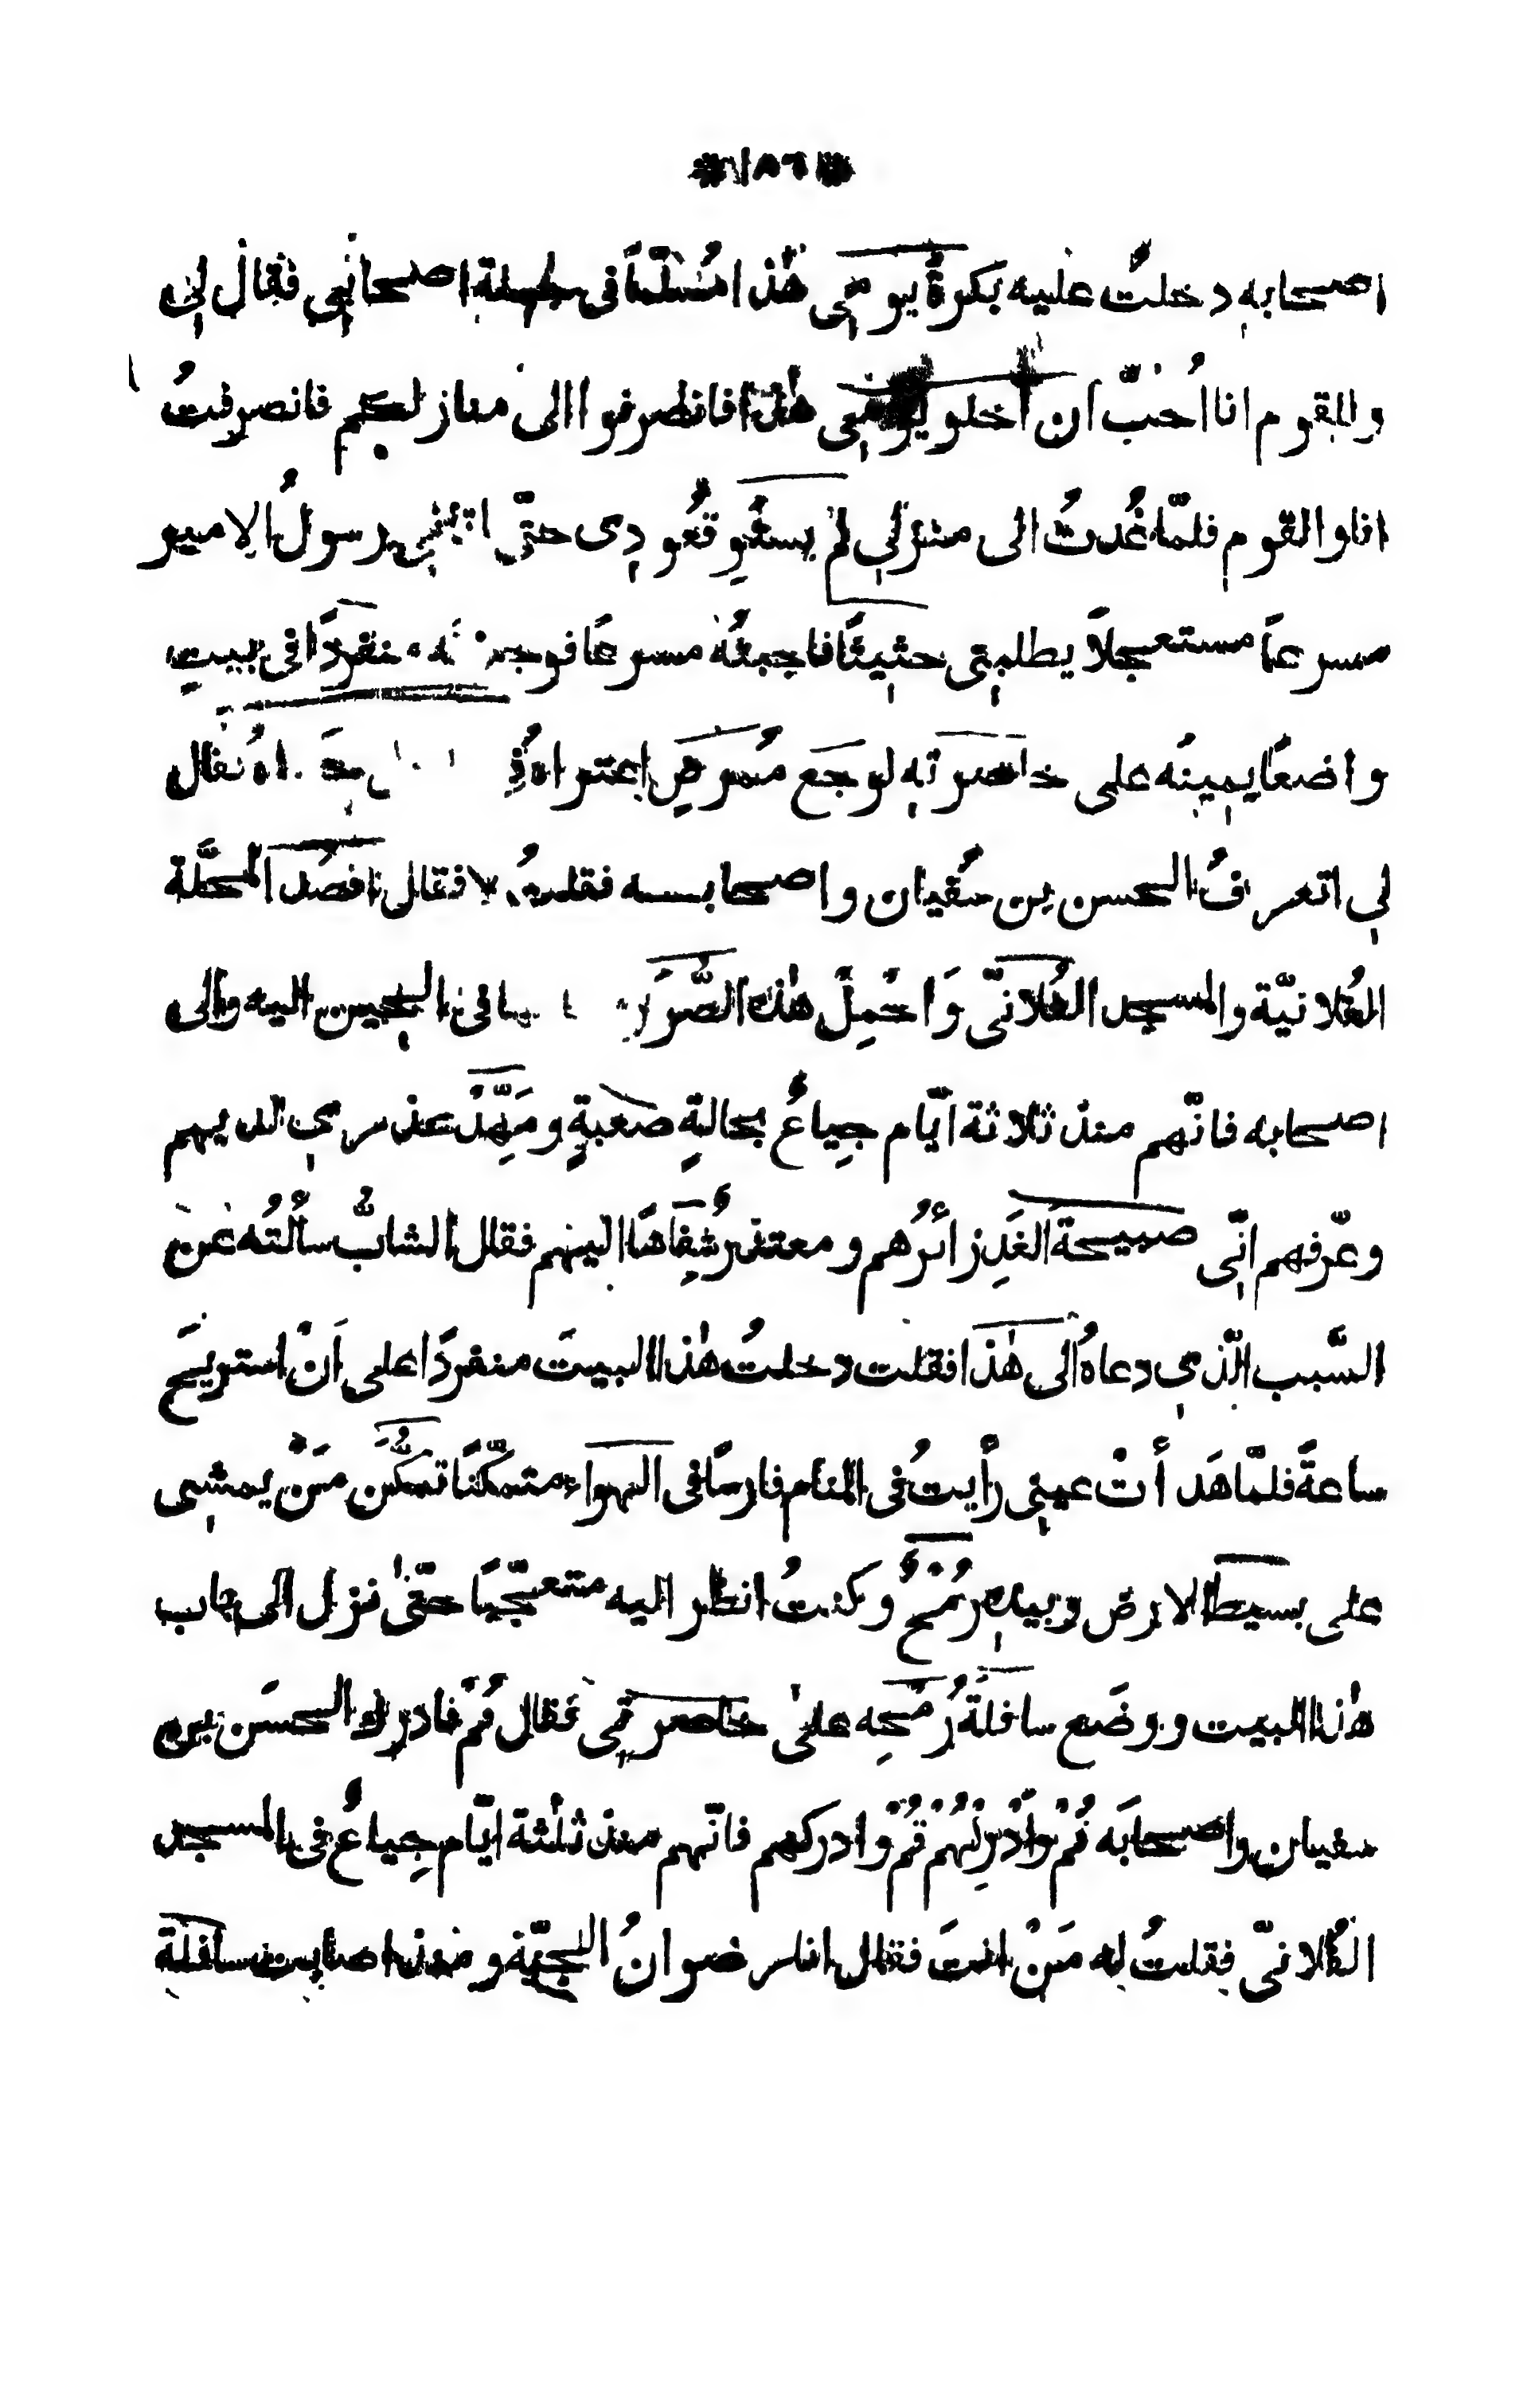 ١٨٦
اصحابه دخلتُ عليه بكرةُ يومى هٰذا مُسلّماً فى جملة اصحابى فقال لى
وللقوم انا اُحبّ ان اخلو يومى هٰذا فانصرفوا الى منازلكم فانصرفتُ
انا والقوم فلمّا عُدتُ الى منزلى لم يستوِ قعُودِى حتّى رسولُ الامير
مسرعاً مستعجلاً يطلبنى حثيثًا فاجبتُه مسرعًا منفردًا فى بيتٍ
واضعًا يمينُه على خاصرتهِ لوجَع مُمرضٍ اعتراهُ فقال
لى اتعرفُ الحسن بن سُفيان واصحابه فقلتُ لا فقال اقصُد المحلَّة
الفُلانيّة والمسجد الفُلانىّ وَاحْمِلْ هٰذه الصُّرَر فى الحين اليه والى
اصحابه فانّهم منذ ثلاثة ايّام جِياعُ بحالةٍ صَعبةٍ ومَهِّدْ عذرى لديهم
وعرّفهم انّى صبيحةَ الغَدِ زائرُهم ومعتذرُ شِفَاهًا اليهم فقال الشابُّ سألتُه عن
السَّبب الّذى دعاهُ الى هٰذا فقلت دخلتُ هٰذا البيتَ منفردًا على اَنْ استريحَ
ساعةً فلمّا هَدأتْ عينى رأيتُ فى المنام فارسًا فى الهواء متمكّنًا تمكُّن مَنْ يمشى
على بسيط الارض وبيدهِ رُمْحٌ وكنتُ انظر اليه متعجّبًا حتّىٰ نزل الى باب
هٰذا البيت ووضَع سافلةَ رُمحِه علىٰ خاصرتى فقال قُمْ فادرك الحسَن بن
سفيان واصحابَه قُمْ وأَدْرِكْهُمْ قُمْ وادركهم فانّهم منذ ثلٰثة ايّام جِياعُ فى المسجد
الفُلانىّ فقلتُ له مَنْ انتَ فقال انا رضوانُ الجنّة ومنذ اصابت سافلة